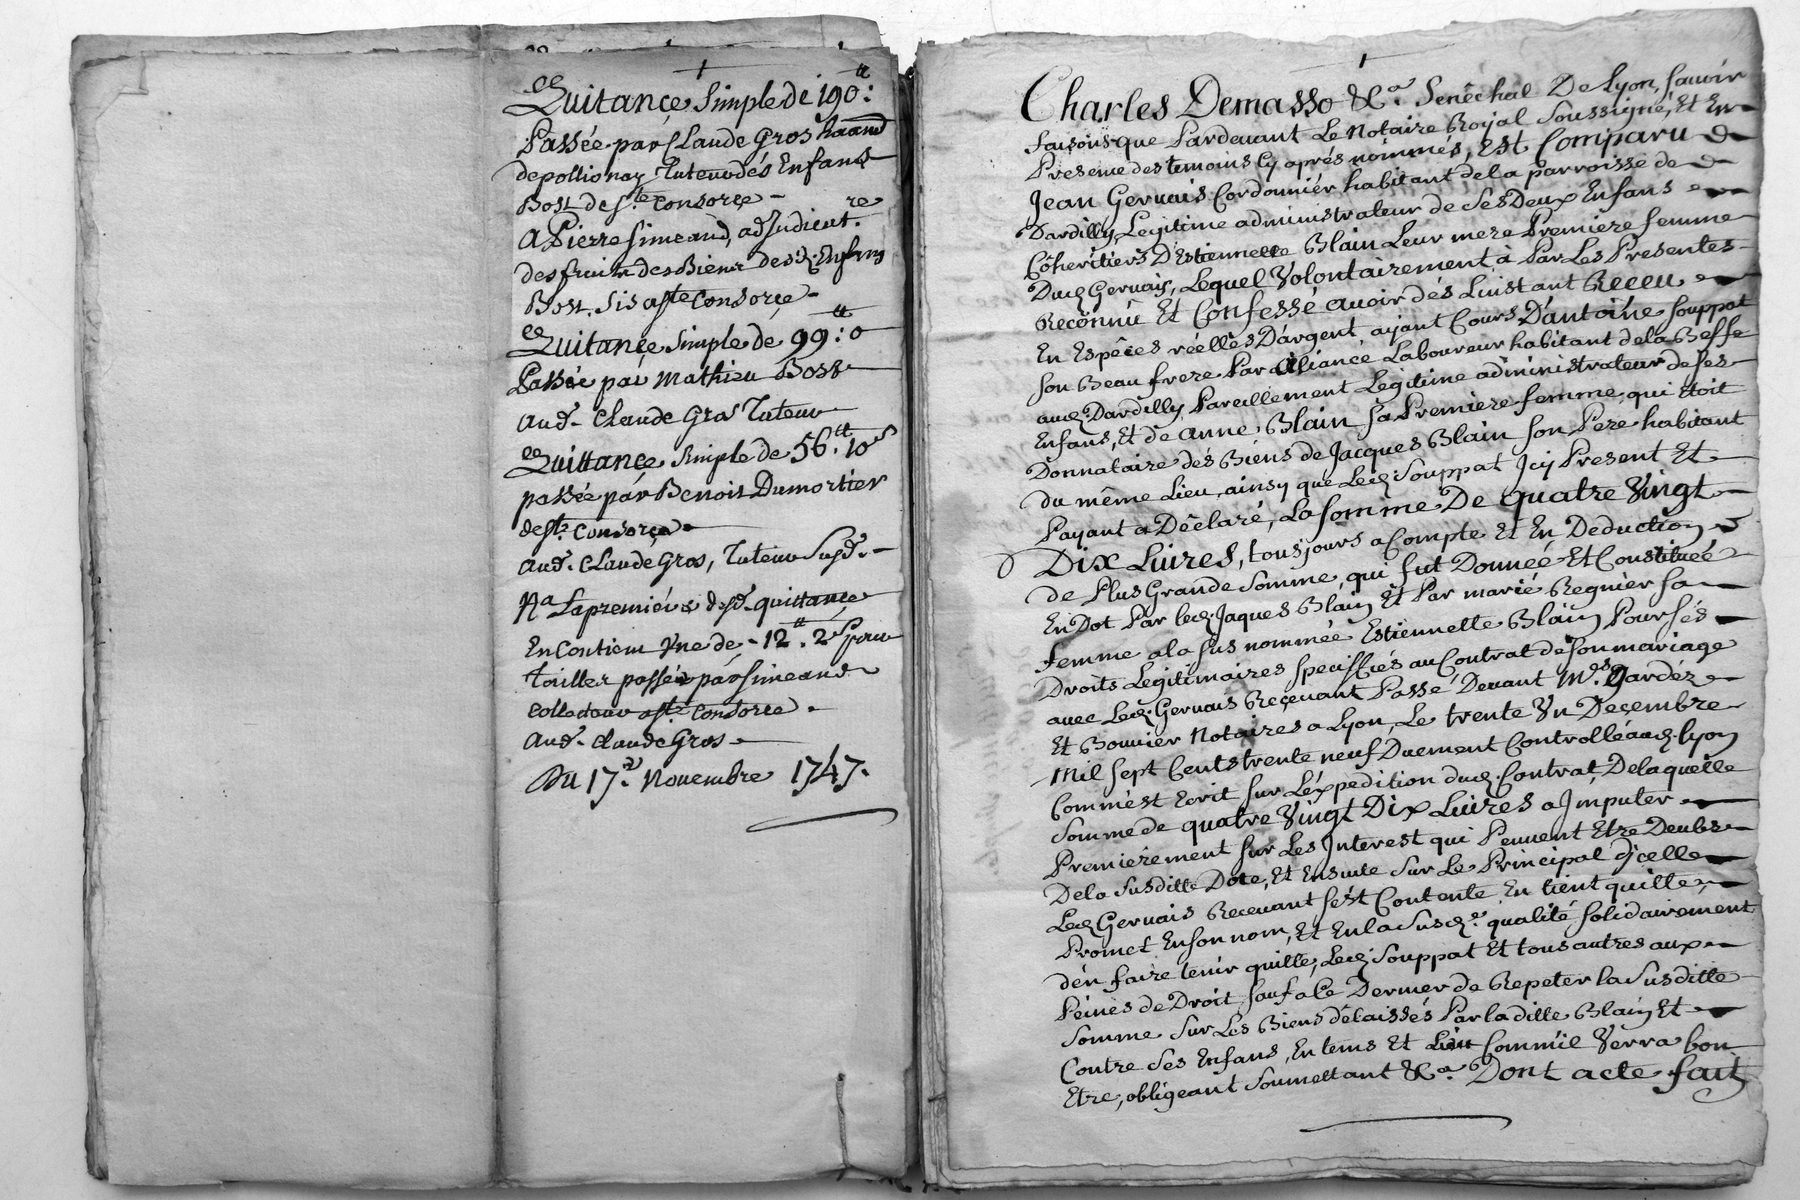 Quitance simple de 190:
Passée par Claude Gros
depollionay Tuteur dés Enfans
Bost de Ste Consorçe
A Pierre Simeand, adjudicatre
des fruits des Biens desd. Enfans
Bost. Sis a Ste Consorçe
Quitance simple de 99:0
Passée par Mathieu Bost
aud. Claude Gros Tuteur
Quittance simple de 56: 10s
passée par Benoit Dumortier
de Ste Consorçe
aud. Claude Gros, Tuteur Susd.
Na La premiére desd. quittances
En Contient Une de 12: 2s pour
Tailles passée par Simeand
Collecteur a Ste Consorce.
aud. Claude Gros
Du 17e. Novembre 1747.
Charles Demasso &Ca. Senêchal De Lyon, Sauoir
faisons que Pardeuant Le Notaire Royal Soussigné, Et En
Presence des temoins Cy aprés nommés, Est Comparu
Jean Geruais Cordonnier habitant de la parroisse de
Dardilly, Legitime administrateur de Ses Deux Enfans
Coheritiers D'Estiennette Blain Leur mere Premiere femme
Dud. Geruais, Lequel Volontairement à Par Les Presentes
Reconnû Et Confessé auoir dés Linstant Receu
En Espêces réelles D'argent ayant Cours D'antoine Souppat
Son Beau frere Par aliance Laboureur habitant de la Beffe
aud. Dardilly Pareillement Legitime administrateur de Ses
Enfans, Et de anne Blain sa Premiere femme, qui Etoit
Donnataire dés Biens de Jacques Blain Son Pere habitant
du même Lieu, ainsy que Led. Souppat Jcy Present Et
Payant a Déclaré, La Somme De quatre Vingt
Dix Liures, tousjours a Compte Et En Deduction
de Plus Grande Somme, qui fut Donnée Et Constituée
En Dot Par led. Jaques Blain Et Par marie Regnier sa
femme a la Sus nommée Estiennette Blain Pour Sés
Droits Legitimaires speciffiés au Contrat de Son mariage
auec Led. Geruais Reçeuant Passé Deuant Mes. Dardéz
Et Bouuier Notaires a Lyon, Le trente Vn Deçembre
Mil Sept Cents trente neuf Duement Controllé aud. Lyon
Comm'est Ecrit Sur L'éxpedition dud. Contrat, De laquelle
Somme de quatre Vingt Dix Liures a Jmputer
Premierement sur Les Jnterest qui Peuuent Etre Deubs
De la Susditte Dote, Et Ensuite Sur Le Principal d'jcelle
Led. Geruais Reçeuant S'est Contenté, En tient quitte,
Promet En Son nom, Et En la Susd.e qualité Solidairement
d'en faire tenir quitte, Led. Souppat Et tous autres aux
Peines de Droit, Sauf a Ce Dernier de Repeter la Susditte
Somme Sur Les Biens délaissés Par la ditte Blain Et
Contre Ses Enfans, En tems Et Lieu Comm'il Verra bon
Etre, obligeant Soumettant &Ca. Dont acte fait